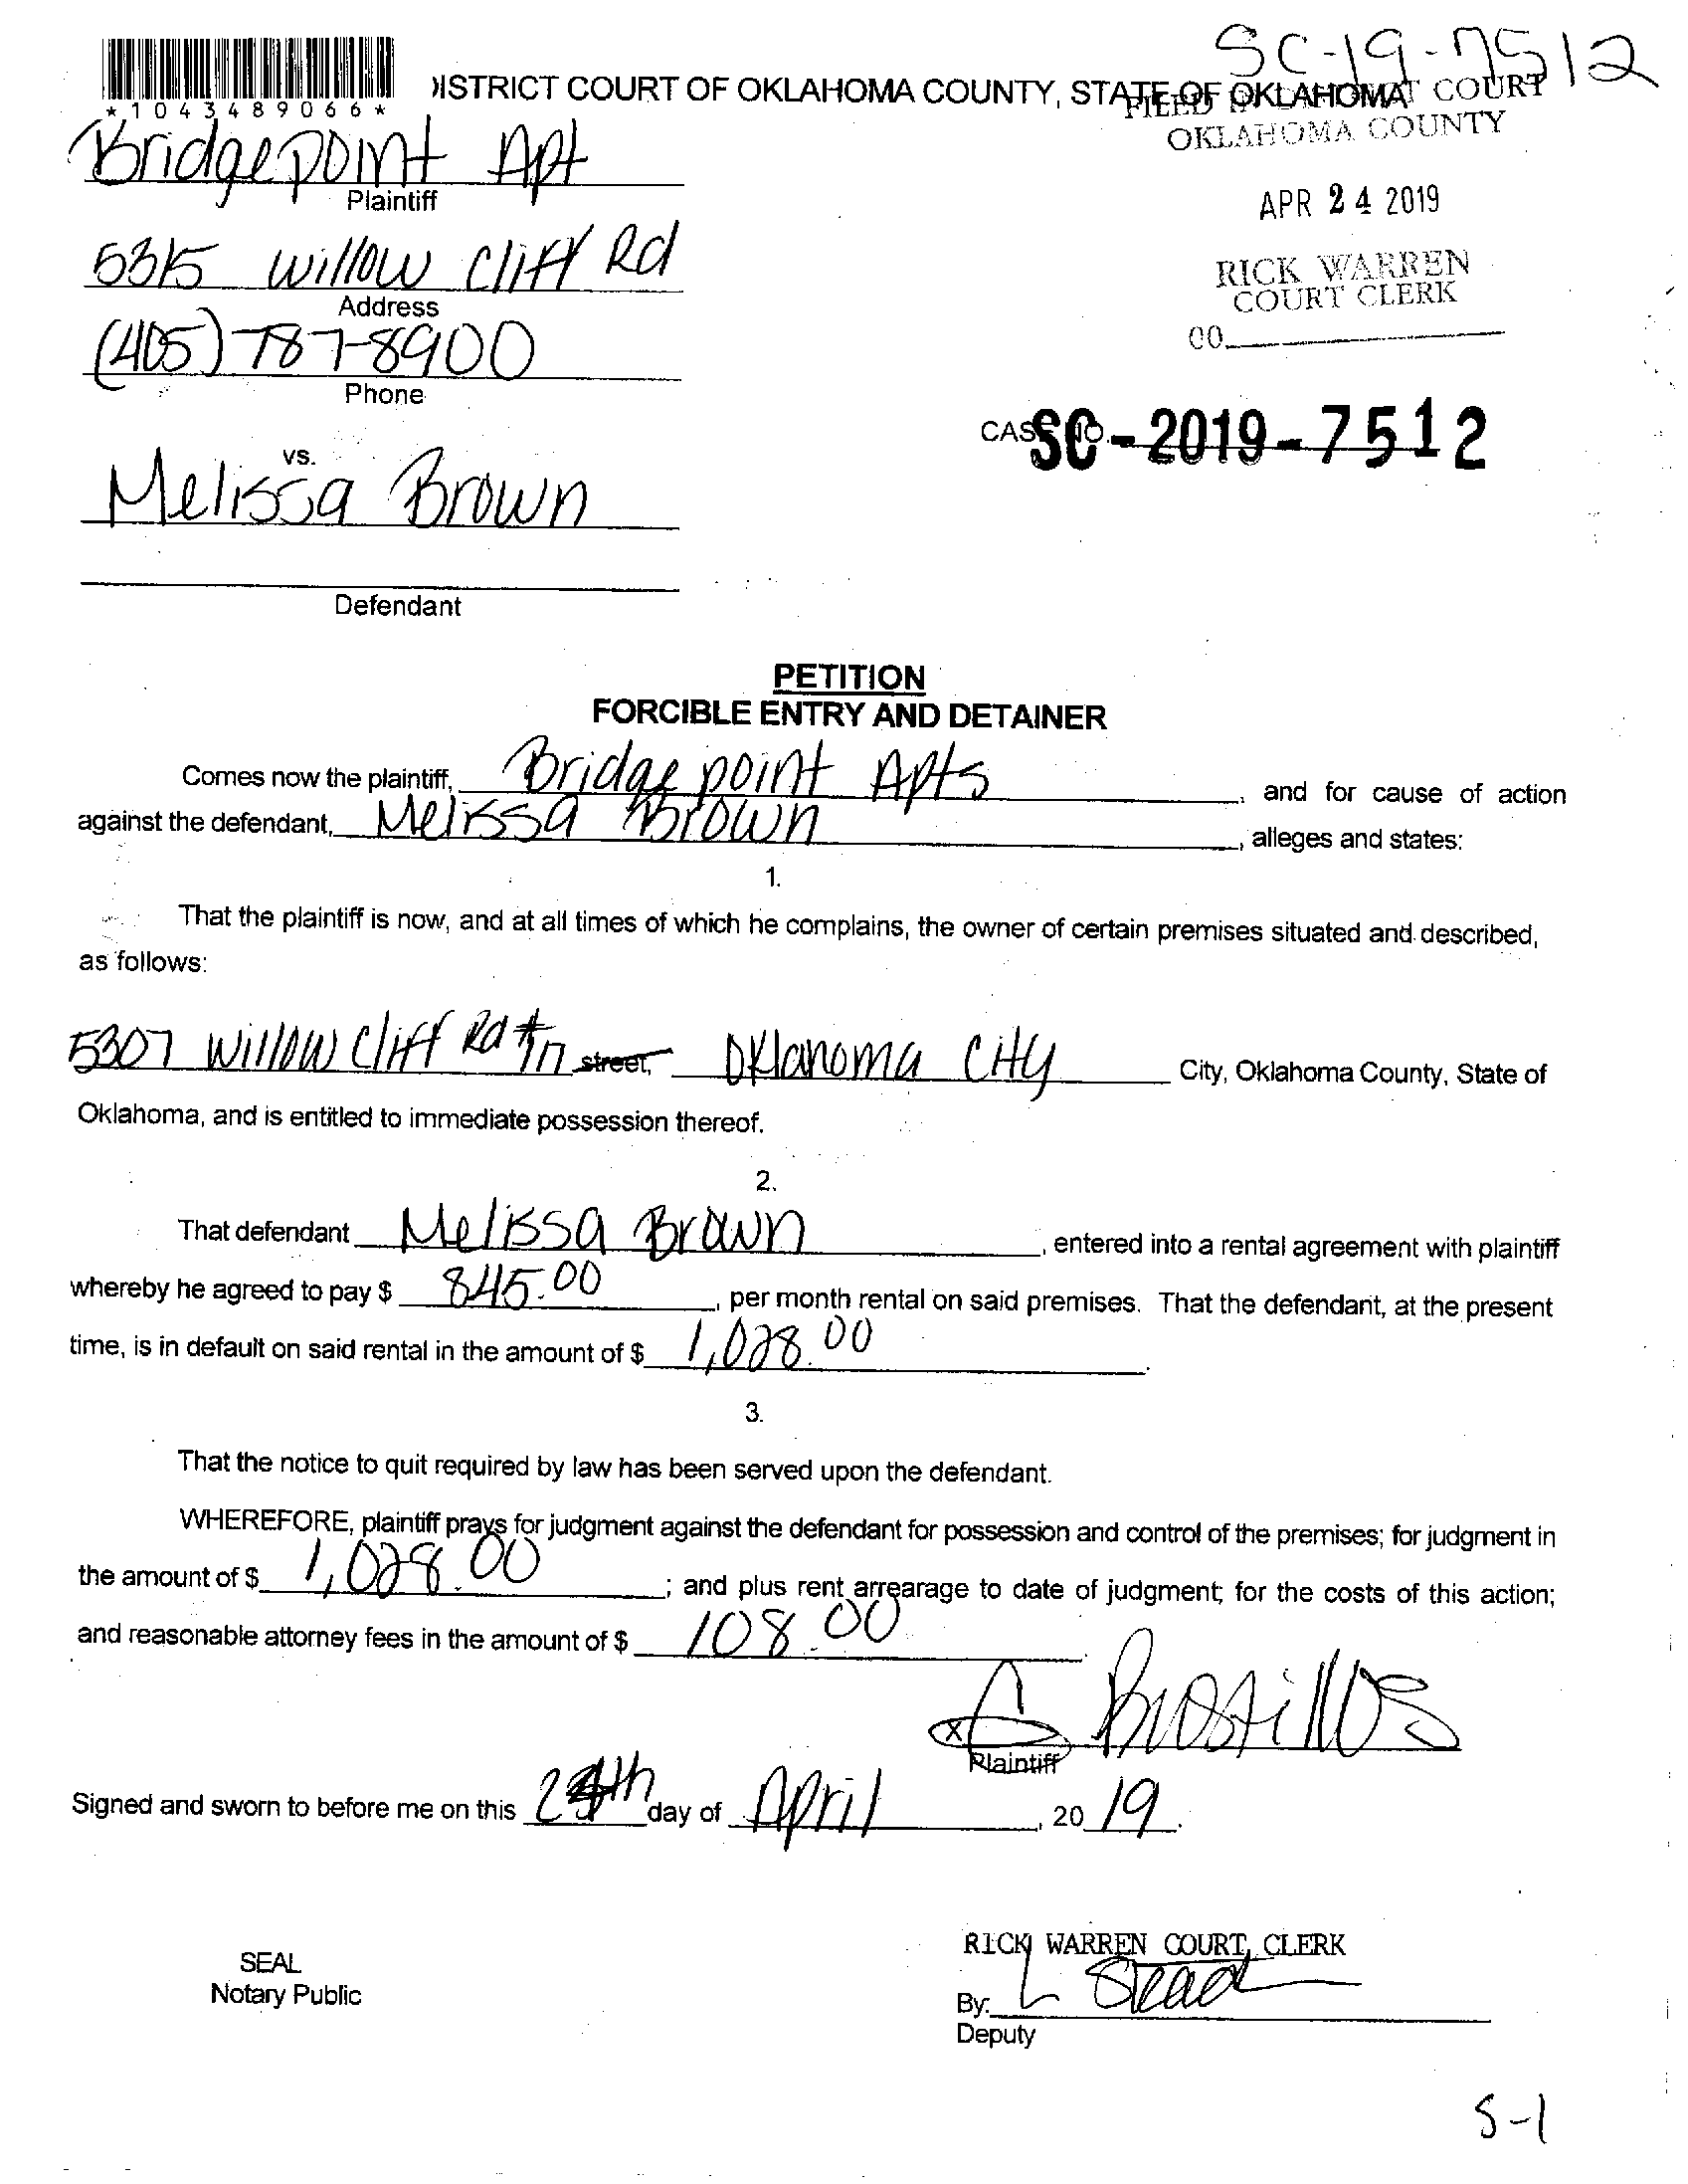 SC-19-7512
DISTRICT COURT OF OKLAHOMA COUNTY, STATE OF OKLAHOMA
*1043489066*
FILED COURT
OKLAHOMA COUNTY
Bridgepoint Apt
Plaintiff
APR 24 2019
5315 Willow Cliff Rd
Address
RICK WARREN
COURT CLERK
(405) 787-8900
Phone
00
CASE NO. SC-2019-7512
vs.
Melissa Brown
Defendant
PETITION
FORCIBLE ENTRY AND DETAINER
Comes now the plaintiff, Bridgepoint Apts, and for cause of action
against the defendant, Melissa Brown, alleges and states:
1.
That the plaintiff is now, and at all times of which he complains, the owner of certain premises situated and described,
as follows:
5307 Willow Cliff Rd street, Oklahoma City City, Oklahoma County, State of
Oklahoma, and is entitled to immediate possession thereof.
2.
That defendant Melissa Brown, entered into a rental agreement with plaintiff
whereby he agreed to pay $ 845.00, per month rental on said premises. That the defendant, at the present
time, is in default on said rental in the amount of $ 1,028.00.
3.
That the notice to quit required by law has been served upon the defendant.
WHEREFORE, plaintiff prays for judgment against the defendant for possession and control of the premises; for judgment in
the amount of $ 1,028.00; and plus rent arrearage to date of judgment; for the costs of this action;
and reasonable attorney fees in the amount of $ 108.00.
X Bustillos
Plaintiff
Signed and sworn to before me on this 24th day of April, 2019.
SEAL
Notary Public
RICK WARREN COURT CLERK
By:
Deputy
S-1